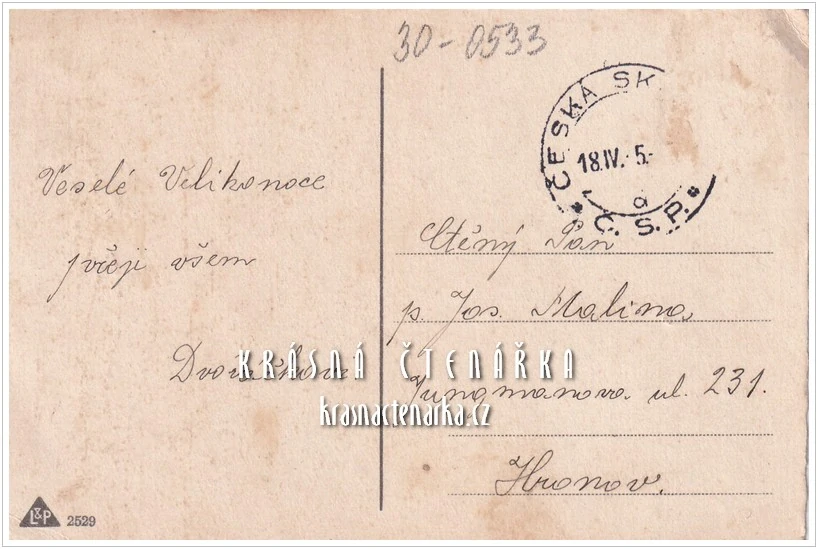 30-0533
ČESKÁ SK
18.IV.-5-
a
* Č.S.P. *
Veselé Velikonoce
přeji všem
Dvořáčkovi
Ctěný Pan
p. Jos. Malina
Jungmanova ul. 231.
Hronov.
KRÁSNÁ ČTENÁŘKA
krasnactenarka.cz
L&P 2529